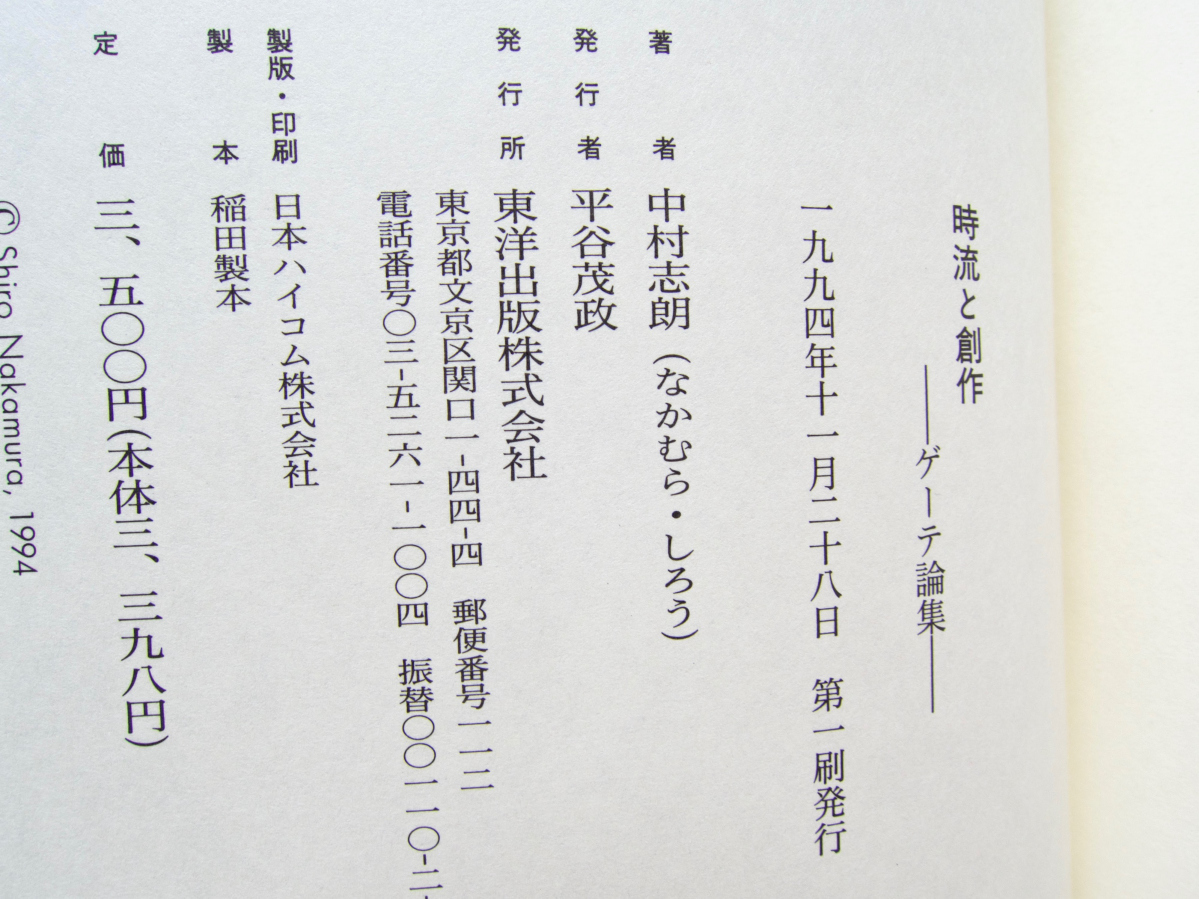 時流と創作
――ゲーテ論集――
一九九四年十一月二十八日　第一刷発行
著者　中村志朗（なかむら・しろう）
発行者　平谷茂政
発行所　東洋出版株式会社
東京都文京区関口一-四四-四　郵便番号一一二
電話番号〇三-五二六一-一〇〇四　振替〇〇一一〇-二
製版・印刷　日本ハイコム株式会社
製本　稲田製本
定価　三、五〇〇円（本体三、三九八円）
© Shiro Nakamura, 1994